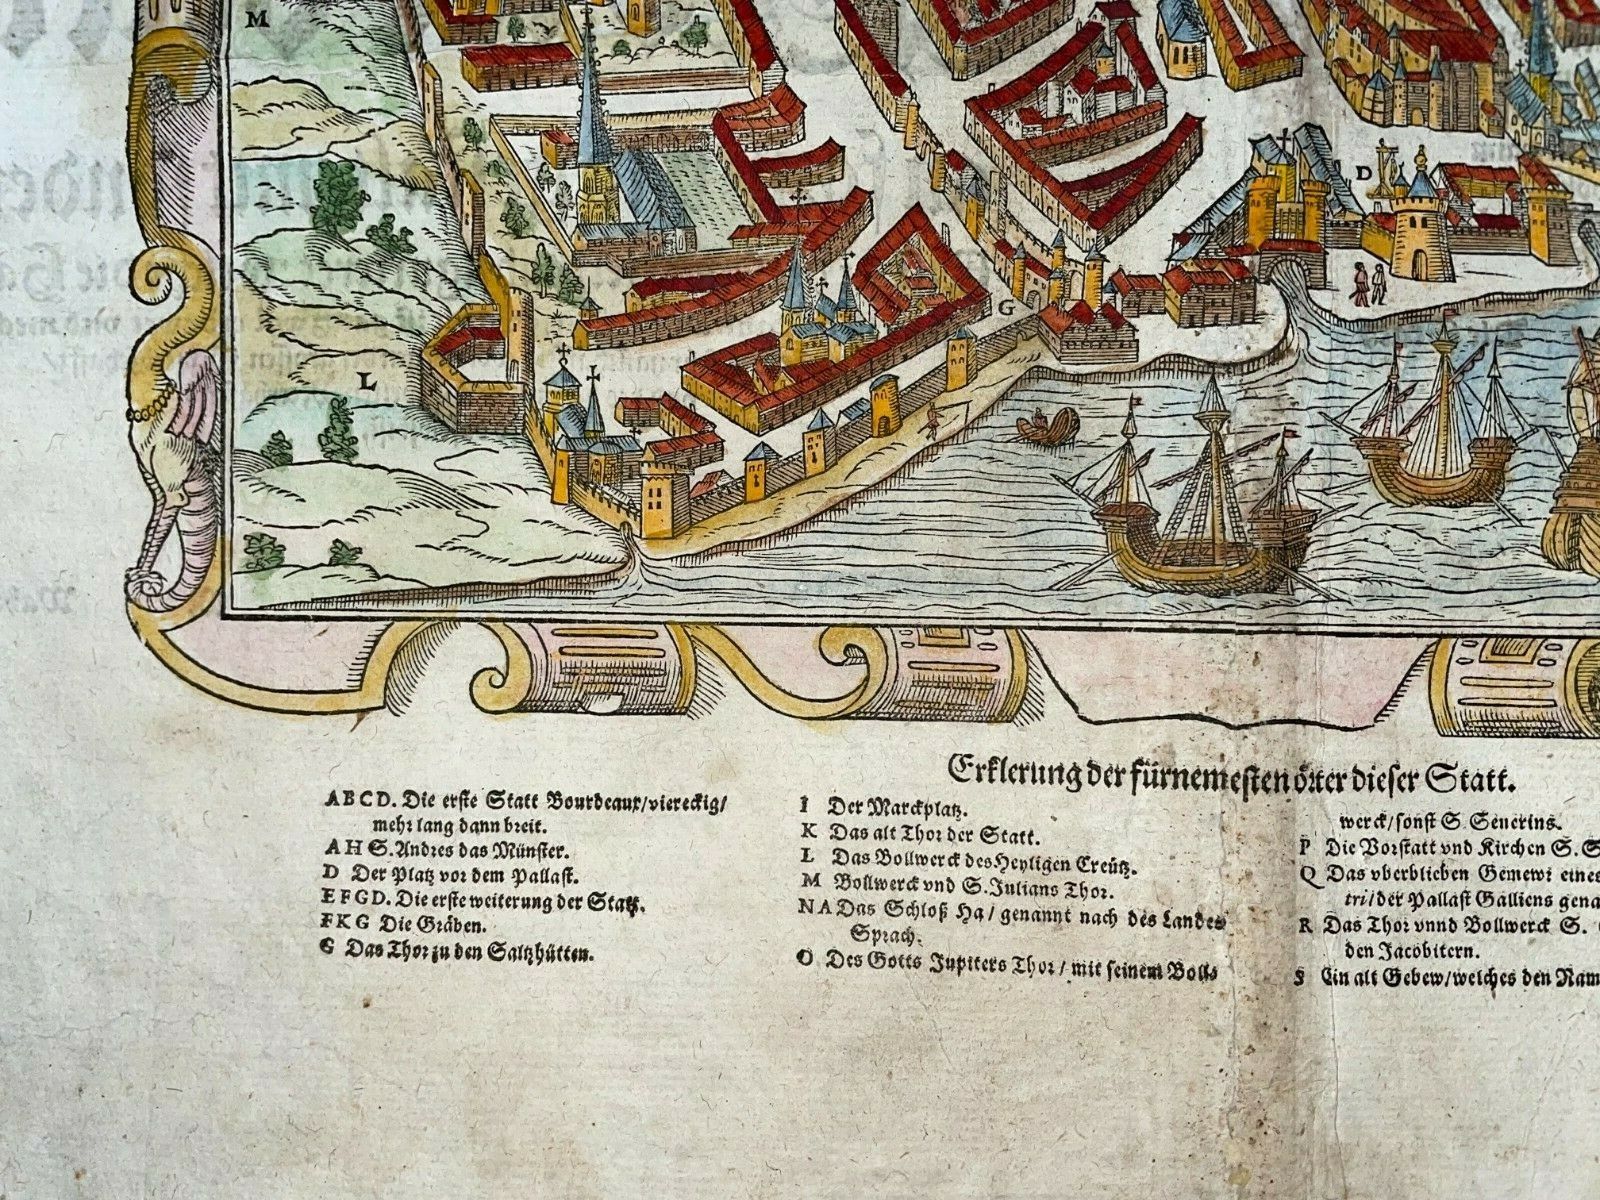 M
D
G
L
Erklerung der fürnemesten örter dieser Statt.
A B C D. Die erste Statt Bourdeaux/viereckig/
mehr lang dann breit.
A H S. Andres das Münster.
D Der Platz vor dem Pallast.
E F G D. Die erste weiterung der Statt.
F K G Die Gräben.
G Das Thor zu den Saltzhütten.
I Der Marckplatz.
K Das alt Thor der Statt.
L Das Bollwerck des Heyligen Creütz.
M Bollwerck vnd S. Julians Thor.
N A Das Schloß Ha/ genannt nach des Landes
Sprach.
O Des Gotts Jupiters Thor/ mit seinem Boll⸗
werck/sonst S. Seuerins.
P Die Vorstatt vnd Kirchen S. S
Q Das vberblieben Gemewr eines
tri/der Pallast Galliens gena
R Das Thor vnnd Bollwerck S.
den Jacobitern.
S Ein alt Gebew/welches den Nam